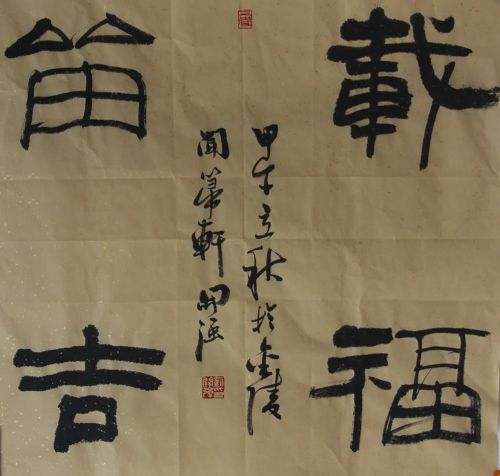 載福
留吉
甲午立秋於金陵
聞 軒